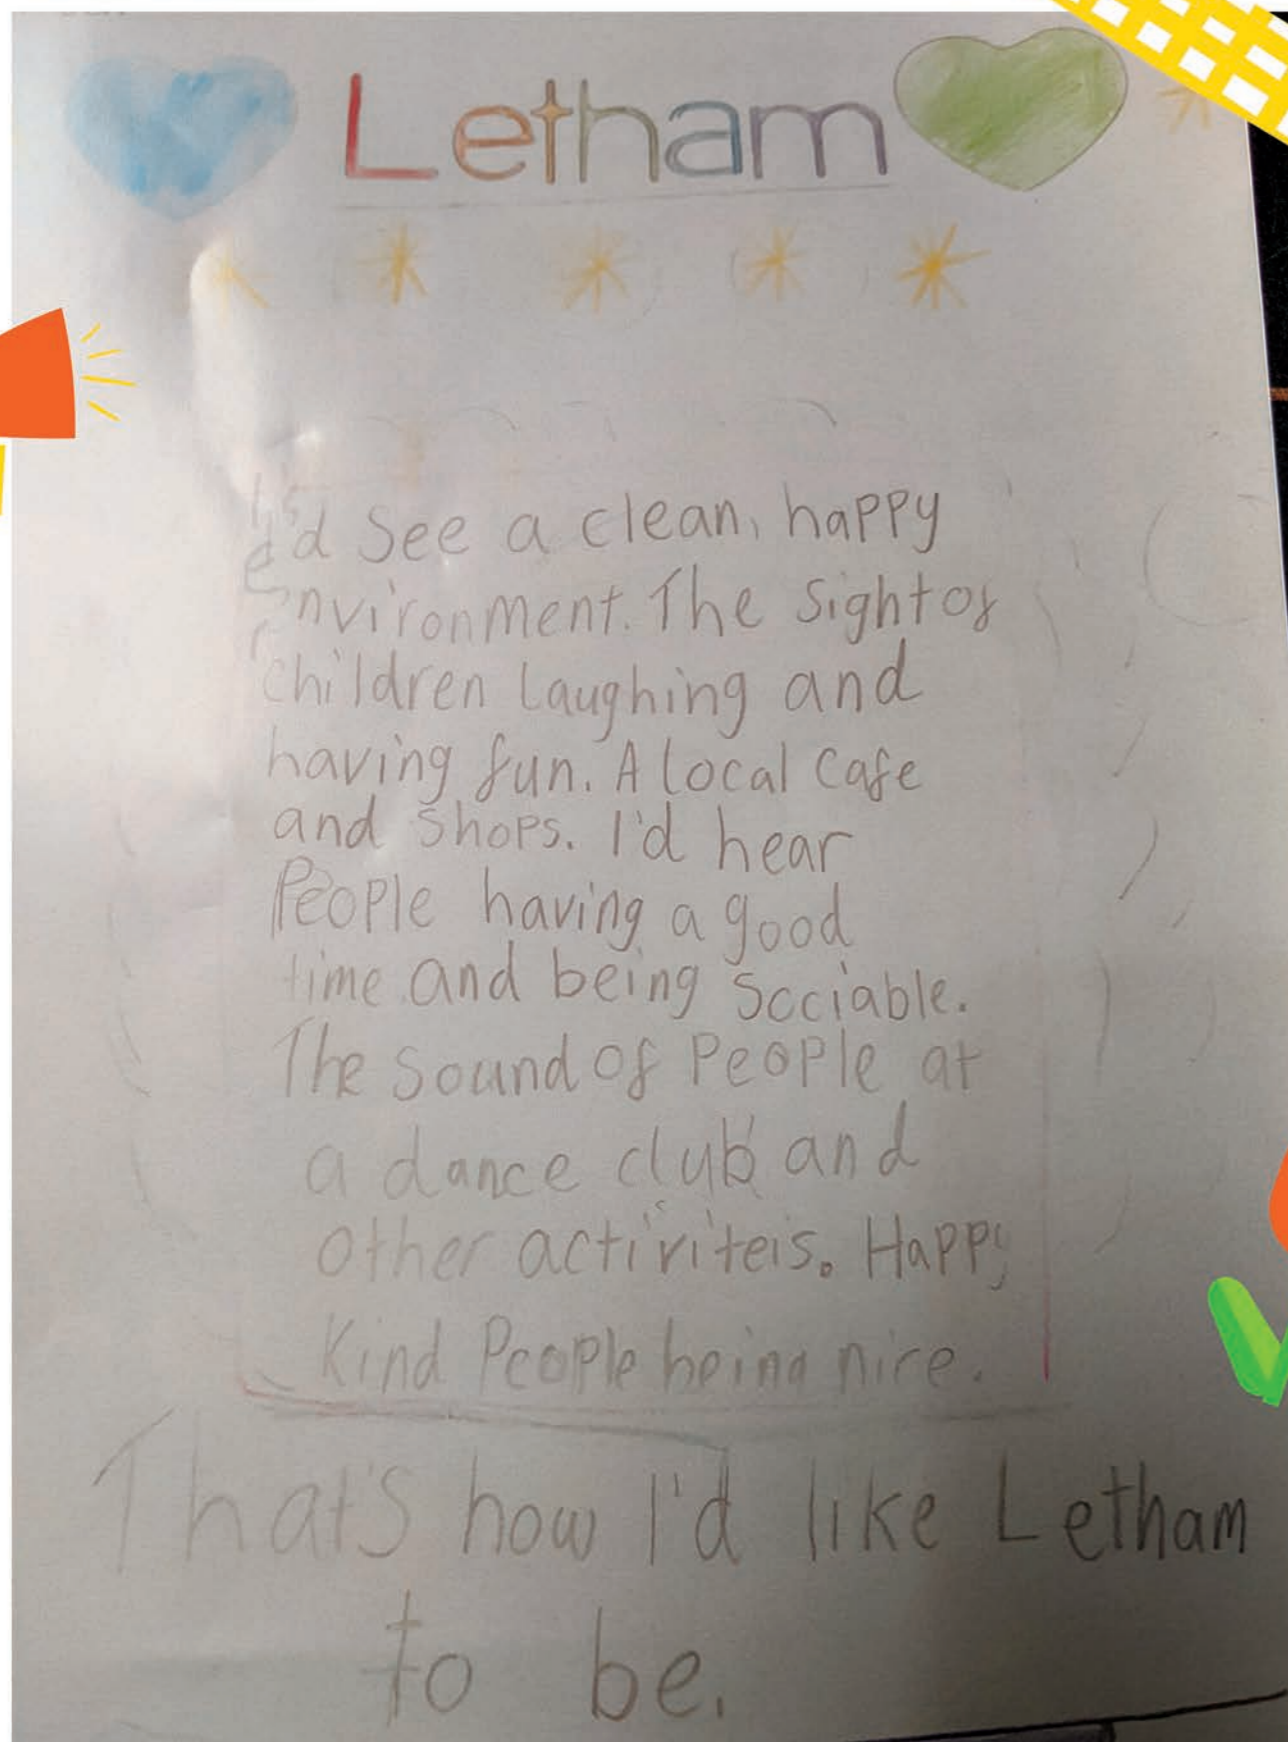 Letham
I'd See a clean, happy
environment. The Sight of
children laughing and
having fun. A local Cafe
and shops. I'd hear
People having a good
time and being Sociable.
The Sound of People at
a dance club and
other activiteis. Happy
Kind People being nice.
That's how I'd like Letham
to be.